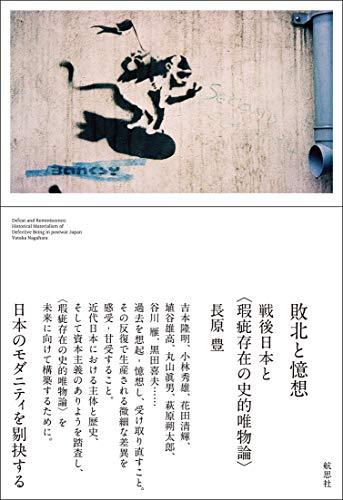 BANKSY
Defeat and Reminiscence:
Historical Materialism of
Defective Being in postwar Japan
Yutaka Nagahara
敗北と憶想
戦後日本と
〈瑕疵存在の史的唯物論〉
長原 豊
吉本隆明、小林秀雄、花田清輝、
埴谷雄高、丸山眞男、萩原朔太郎、
谷川 雁、黒田喜夫……
過去を想起‐憶想し、受け取り直すこと。
その反復で生産される微細な差異を
感受‐甘受すること。
近代日本における主体と歴史、
そして資本主義のありようを踏査し、
〈瑕疵存在の史的唯物論〉を
未来に向けて構築するために。
日本のモダニティを剔抉する
航思社